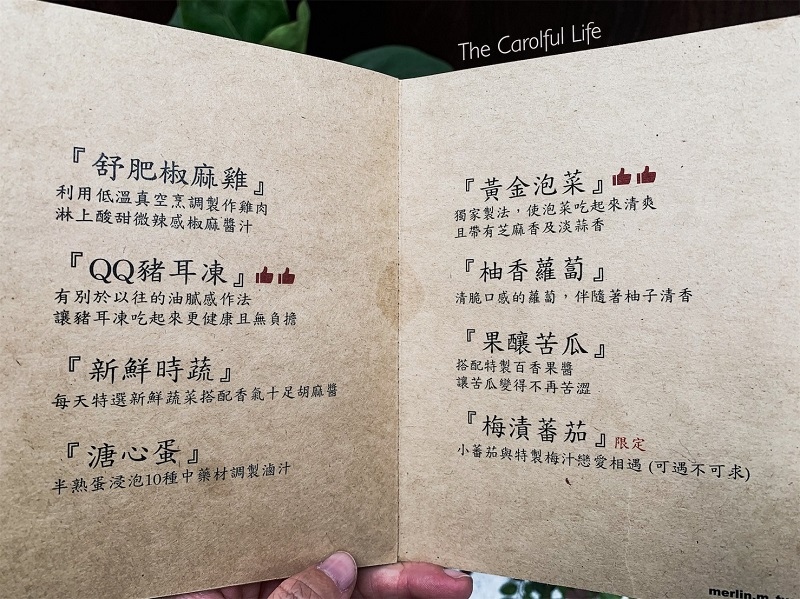 The Carolful Life
『舒肥椒麻雞』
利用低溫真空烹調製作雞肉
淋上酸甜微辣感椒麻醬汁
『QQ豬耳凍』
有別於以往的油膩感作法
讓豬耳凍吃起來更健康且無負擔
『新鮮時蔬』
每天特選新鮮蔬菜搭配香氣十足胡麻醬
『溏心蛋』
半熟蛋浸泡10種中藥材調製滷汁
『黃金泡菜』
獨家製法，使泡菜吃起來清爽
且帶有芝麻香及淡蒜香
『柚香蘿蔔』
清脆口感的蘿蔔，伴隨著柚子清香
『果釀苦瓜』
搭配特製百香果醬
讓苦瓜變得不再苦澀
『梅漬蕃茄』限定
小蕃茄與特製梅汁戀愛相遇 (可遇不可求)